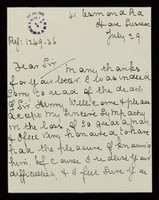 July 29
Ref: 1249-36
Dear Sir
Many thanks
for your letter. I was indeed
sorry to read of the death
of Sir Henry Wellcome & please
accept my sincere sympathy
in the loss of so great a man
& I feel very honoured to have
had the pleasure of knowing
him, because I realise your
difficulties, & I feel sure if as